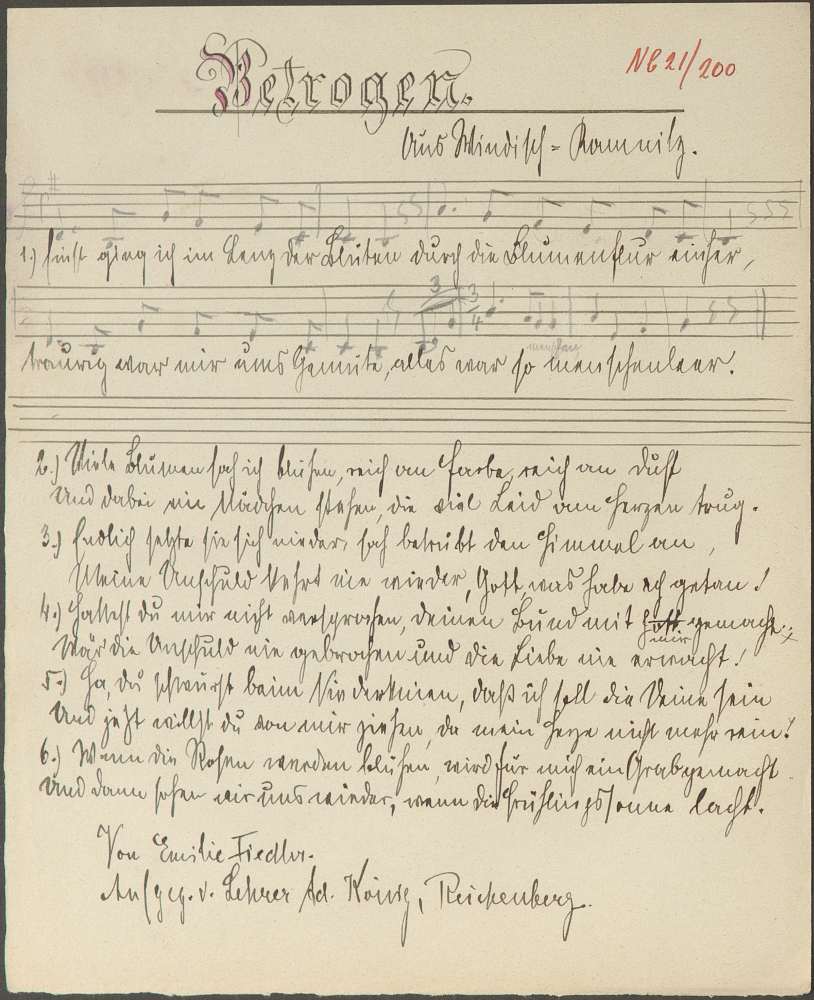 Betrogen.
NB 21/200
Aus Windisch-Kamnitz.
1.) Einst ging ich im Lenz der Blüten durch die Blumenflur einher,
3
3/4
traurig war mir ums Gemüte, alles war so menschenleer.
2.) Viele Blumen sah ich blühen, reich an Farbe, reich an Duft
Und dabei ein Mädchen stehen, die viel Leid am Herzen trug.
3.) Endlich setzte sie sich nieder, sah betrübt den Himmel an,
Meine Unschuld kehrt nie wieder, Gott, was habe ich getan!
4.) Hattest du mir nicht versprochen, deinen Bund mit Gott gemacht
mir
Wär die Unschuld nie gebrochen und die Liebe nie erwacht!
5.) Ja, du schwurst beim Niederknien, daß ich soll die Deine sein
Und jetzt willst du von mir ziehen, da mein Herze nicht mehr rein!
6.) Wenn die Rosen werden blühen, wird für mich ein Grab gemacht
Und dann sehen wir uns wieder, wenn die Frühlingssonne lacht.
Von Emilie Fiedler.
Aufgez. v. Lehrer Ad. König, Reichenberg.